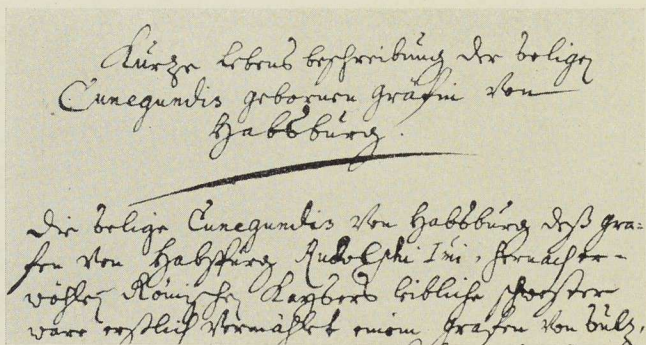 Kurtze lebens beschreibung der seligen
Cunegundis gebornen gräfin von
Habsburg.
Die selige Cunegundis von Habsburg deß gra=
fen von Habspurg Rudolphi Imi, hernach er=
wöhlen Römischen Kaysers leibliche schwester
ware erstlich vermählet einem grafen von Sulz,